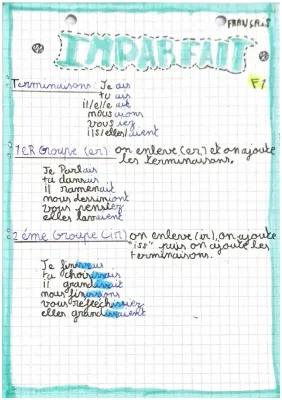 FRANÇAIS
IMPARFAIT
F1
Terminaisons: Je ais
tu ais
il/elle ait
nous ions
vous iez
ils/elles/aient
1ER Groupe (er) on enleve (er) et on ajoute
les terminaisons,
Je Parlais
tu dansais
il ramenait
nous dessinions
vous pensiez
elles lavaient
2 éme Groupe (ir) on enleve (ir), on ajoute
"iss" puis on ajoute les
terminaisons.
Je finissais
tu choisissais
il grandissait
nous finissions
vous réfléchissiez
elles grandissaient